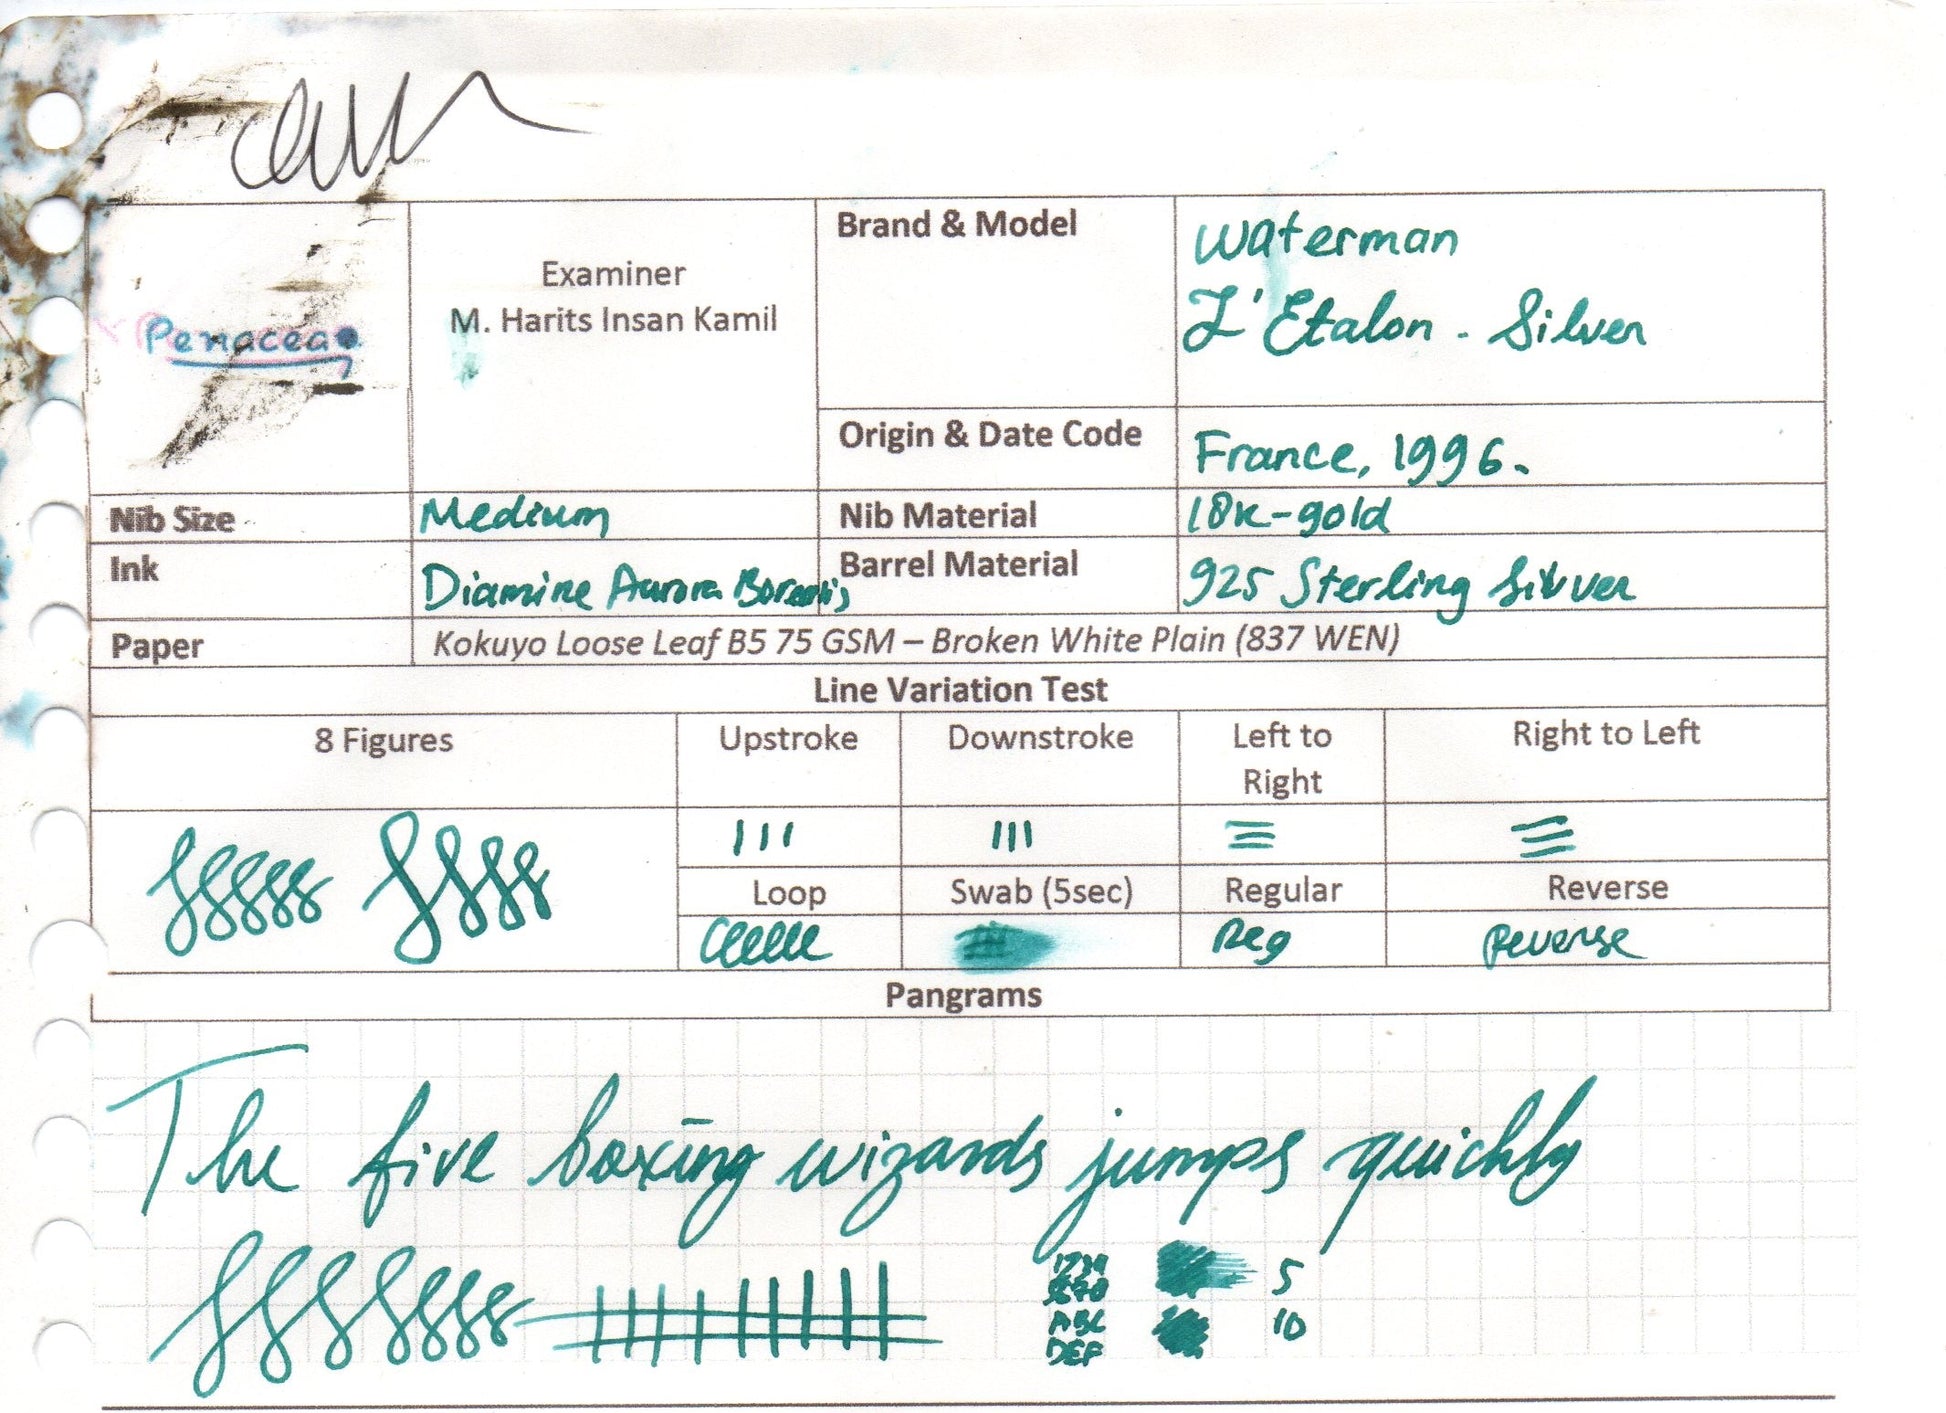 Penacea
Examiner
M. Harits Insan Kamil
Brand & Model
Waterman
L'Etalon - Silver
Origin & Date Code
France, 1996.
Nib Size
Medium
Nib Material
18k-gold
Ink
Diamine Aurora Borealis
Barrel Material
925 Sterling Silver
Paper
Kokuyo Loose Leaf B5 75 GSM – Broken White Plain (837 WEN)
Line Variation Test
8 Figures
Upstroke
Downstroke
Left to
Right
Right to Left
Loop
Swab (5sec)
Regular
Reverse
Reg
Reverse
Pangrams
The five boxing wizards jumps quickly
1234
5678
ABC
DEF
5
10